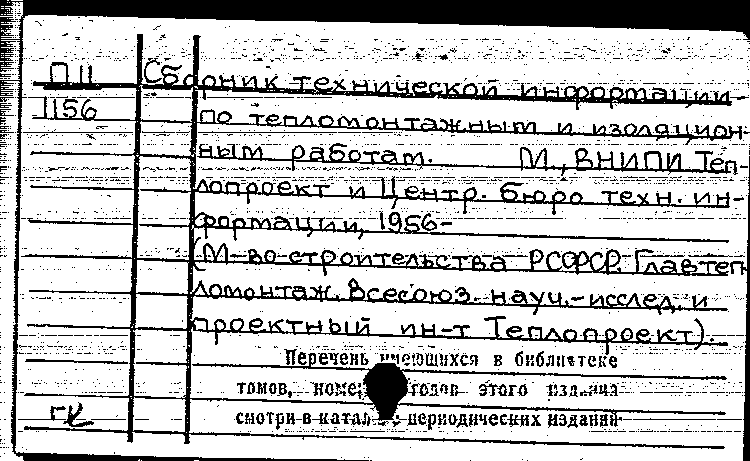 П II Сборник технической информации
1156 по тепломонтажным и изоляцион-
ным работам. М., ВНИПИ Теп-
лопроект и Центр. бюро техн. ин-
формации, 1956-
(М-во строительства РСФСР. Главтеп
ломонтаж. Всесоюз. науч.-исслед. и
проектный ин-т Теплопроект).
Перечень имеющихся в библиотеке
томов, годов этого издания
смотри в периодических изданий
гк